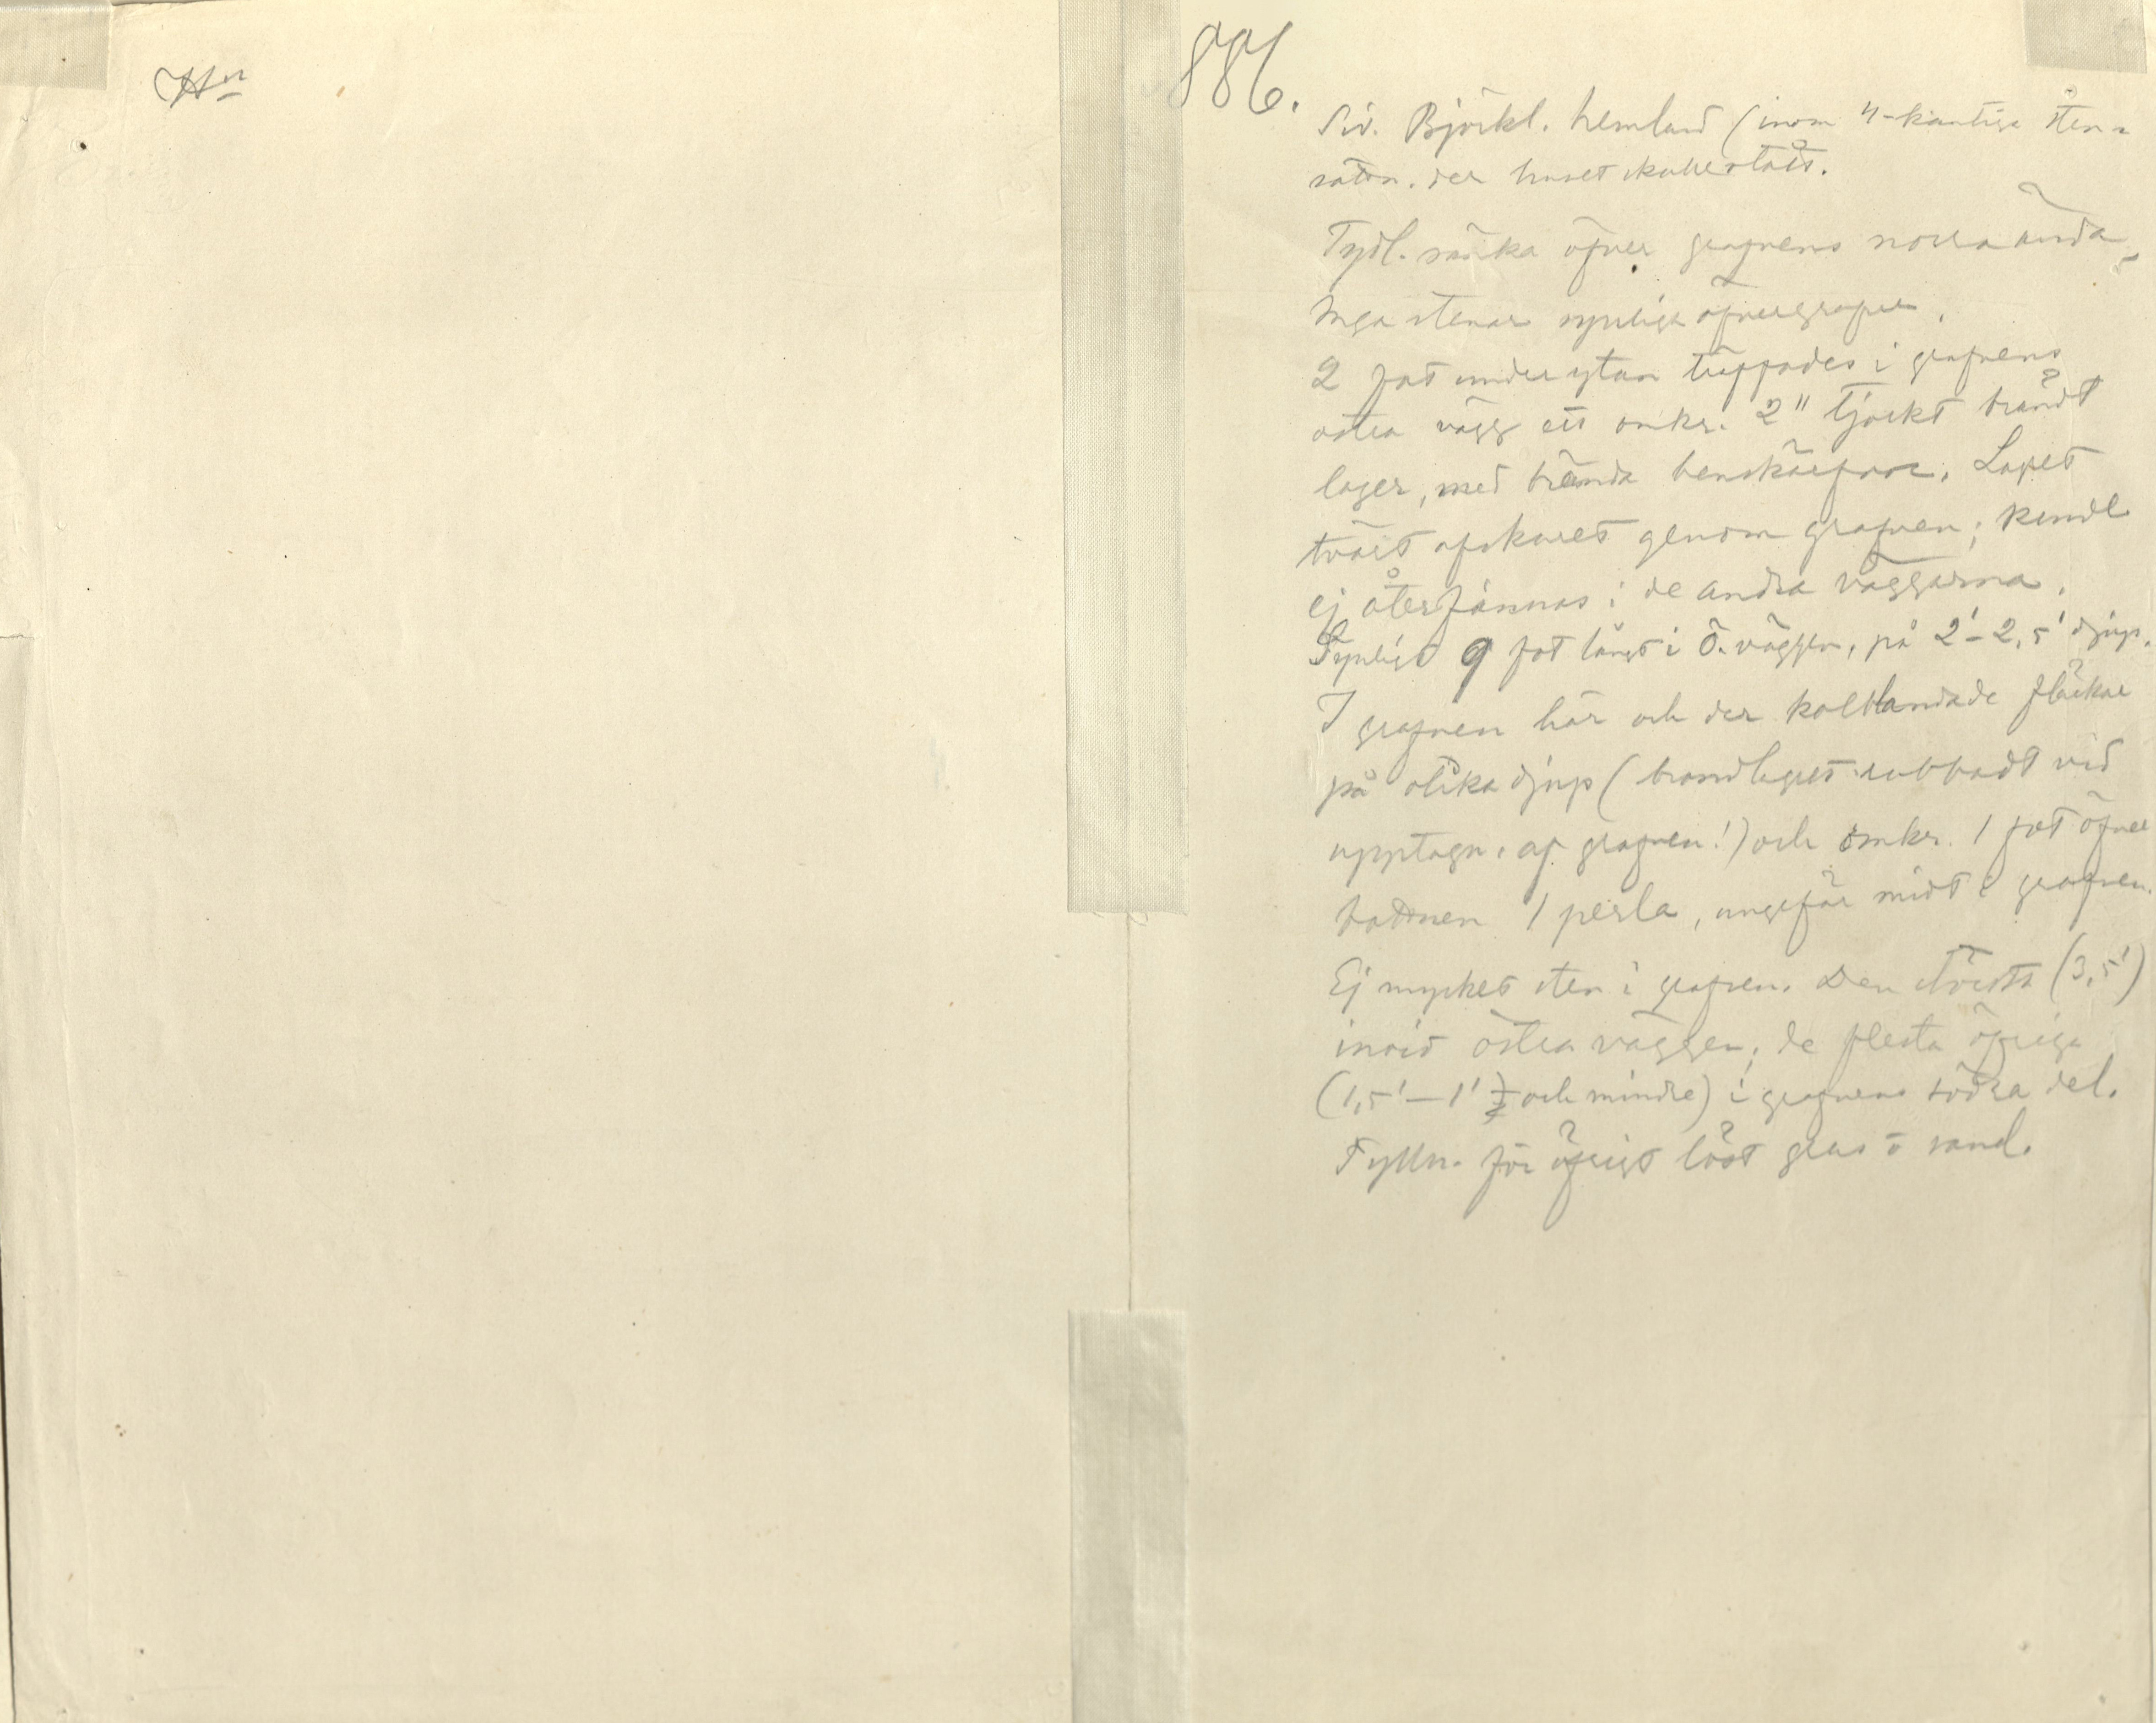 Hn
886.
Siv. Björkl. hemland (inom 4-kantiga sten-
sättn. der huset skulle stått.
Tydl. sänka öfver grafvens norra ända,
Inga stenar synliga öfver grafven.
2 fot under ytan träffades i grafvens
östra vägg ett omkr. 2" tjockt brändt
lager, med brända benskärfvor. Lagret
tvärt afskuret genom grafven; kunde
ej återfinnas i de andra väggarna.
Synligt 9 fot långt i Ö. väggen, på 2'-2,5' djup.
I grafven här och der kolblandade fläckar
på olika djup (brandlagret rubbadt vid
upptagn. af grafven!) och omkr. 1 fot öfver
bottnen 1 perla, ungefär midt i grafven.
Ej mycket sten i grafven. Den största (3,5')
invid östra väggen; de flesta öfriga
(1,5'-1' och mindre) i grafvens södra del.
Fylln. för öfrigt löst grus o sand.